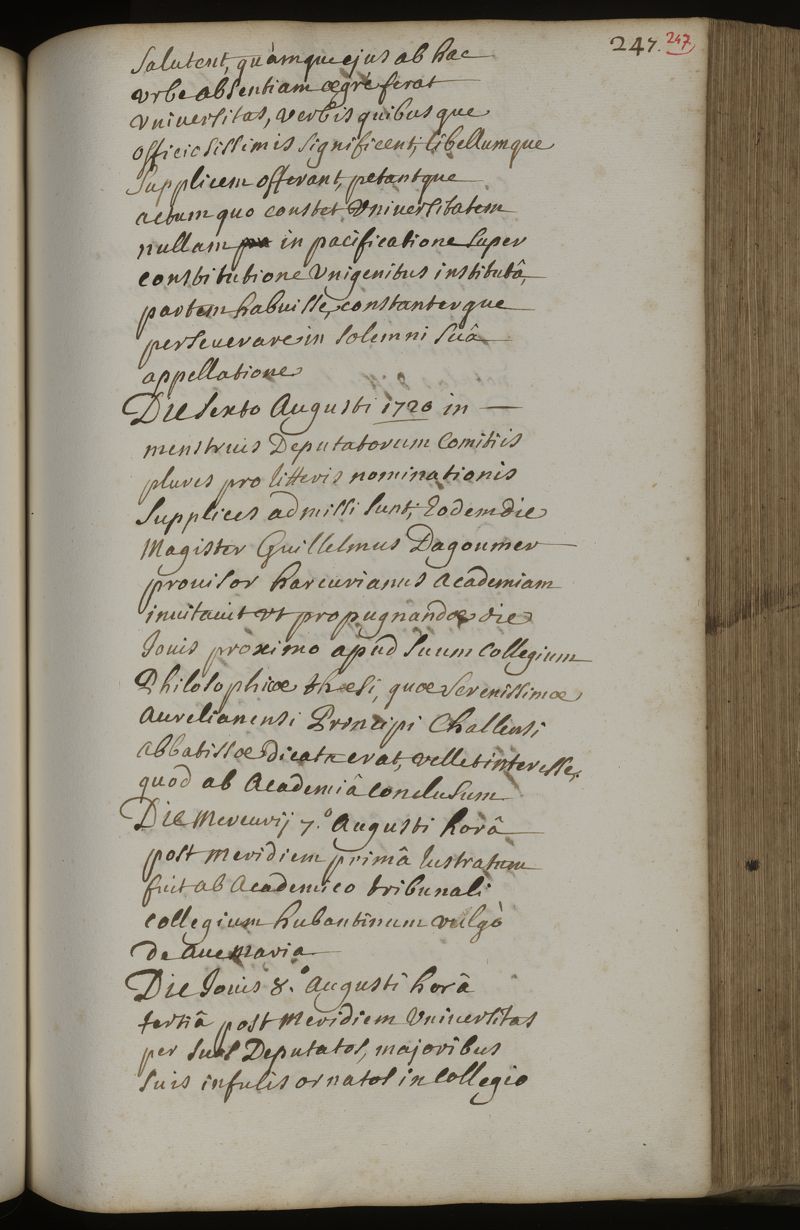 247. 247
Salutent, quàmque ejus ab hac
vrbe absentiam œgrè ferat
vniuersitas, verbis quibusque
officiosissimis significent, libellumque
supplicem offerant, petantque
actum quo constet Vniuersitatem
nullam in pacificatione super
constitutione Vnigenitus institutâ,
partem habuisse, constanterque
perseuerare in solemni suâ
appellatione
Die sexto Augusti 1720 in —
menstruis Deputatorum Comitiis
plures pro litteris nominationis
supplices admissi sunt, Eodem die
Magister Guillelmus Dagoumer
prouisor harcurianus academiam
inuitauit vt propugnandœ die
Jouis proximo apud suum Collegium
Philosophicœ thœsi, quœ serenissimœ
aurelianensi Principi Challensi
abbatissœ dicata erat, vellet interesse,
quod ab Academiâ conclusum
Die Mercurij 7.º augusti horâ
post meridiem primâ lustratum
fuit ab academico tribunali
collegium hubantinum vulgò
de aue maria
Die Jouis 8.º augusti horâ
tertiâ post meridiem Vniuersitas
per suos Deputatos, majoribus
suis infulis ornatos in Collegio